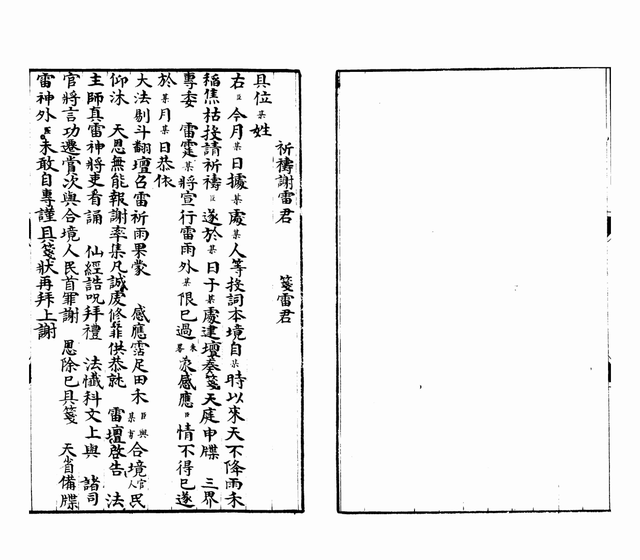 祈禱謝雷君　　箋雷君
具位某姓
右臣今月某日據某處某人等投詞本境自某時以來天不降雨禾
稻焦枯投請祈禱臣遂於某日于某處建壇奏箋天庭申牒　三界
專委　雷霆某將宣行雷雨外某佷已過未畧汞感應臣情不得已遂
於某月某日恭依
大法剔斗翻壇召雷祈雨果蒙　感應霑足田禾臣與某方合境官人民
仰沐　天恩無能報謝率集凡誠處修䇹供恭就　雷壇啓告　法
主師真雷神將吏看誦　仙經誥呪拜禮　法懺科文上與　諸司
官將言功遷賞次與合境人民首罪謝　恩除已具箋　天省備牒
雷神外臣未敢自專謹具箋狀再拜上謝